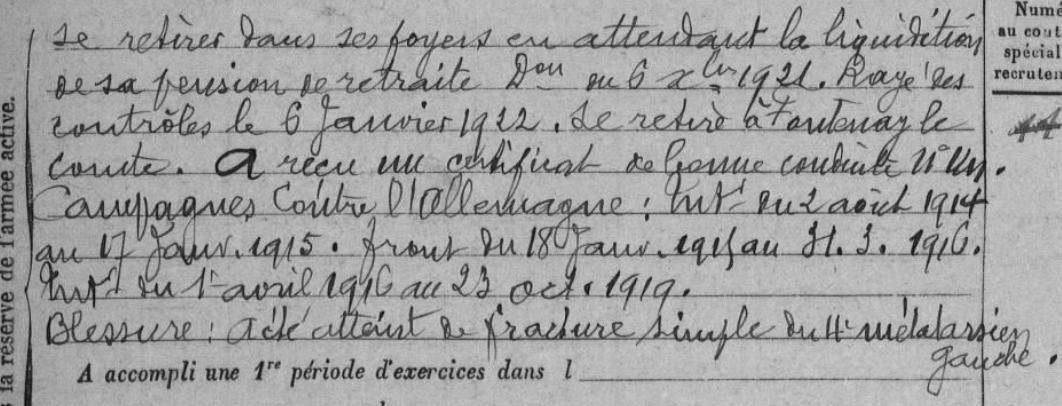 se retirer dans ses foyers en attendant la liquidation
de sa pension de retraite Don du 6 xbre 1921. Rayé des
contrôles le 6 Janvier 1922. Se retire à Fontenay le
comte. A reçu un certificat de bonne conduite N° Un.
Campagnes Contre l'Allemagne : Intr du 2 août 1914
au 17 Janv. 1915. front du 18 Janv. 1915 au 31. 3. 1916.
Intr du 1er avril 1916 au 23 oct. 1919.
Blessure : a été atteint de fracture simple du 4e métatarsien
gauche.
A accompli une 1re période d'exercices dans l
la réserve de l'armée active.
Numé
au cout
spécial
recrutem